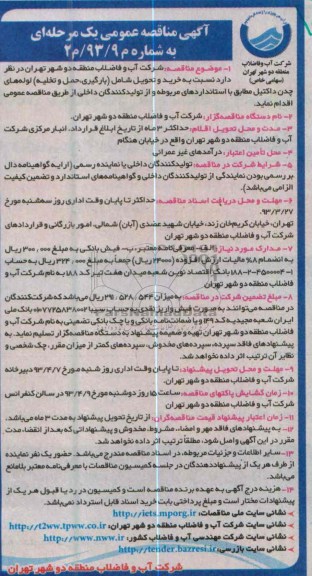 آگهی مناقصه عمومی یک مرحله‌ای
به شماره م۲/۹۳/۹م
شرکت آب و فاضلاب
منطقه دو شهر تهران
(سهامی خاص)
۱- موضوع مناقصه: شرکت آب و فاضلاب منطقه دو شهر تهران در نظر
دارد نسبت به خرید و تحویل شامل (بارگیری، حمل و تخلیه) لوله‌های
چدن داکتیل مطابق با استانداردهای مربوطه و از تولیدکنندگان داخلی از طریق مناقصه عمومی
اقدام نماید.
۲- نام دستگاه مناقصه‌گزار: شرکت آب و فاضلاب منطقه دو شهر تهران.
۳- مدت و محل تحویل اقلام: حداکثر ۳ ماه از تاریخ ابلاغ قرارداد، انبار مرکزی شرکت
آب و فاضلاب منطقه دو شهر تهران واقع در خیابان هنگام
۴- محل تأمین اعتبار: درآمدهای غیر عمرانی
۵- شرایط شرکت در مناقصه: تولیدکنندگان داخلی یا نماینده رسمی (ارایه گواهینامه دال
بر رسمی بودن نمایندگی از تولیدکنندگان داخلی و گواهینامه‌های استاندارد و تضمین کیفیت
الزامی می‌باشد).
۶- مهلت و محل دریافت اسناد مناقصه: حداکثر تا پایان وقت اداری روز سه‌شنبه مورخ
۹۳/۳/۲۷
تهران، خیابان کریم‌خان زند، خیابان شهید عضدی (آبان) شمالی، امور بازرگانی و قراردادهای
شرکت آب و فاضلاب منطقه دو شهر تهران
۷- مدارک مورد نیاز: الف- معرفی‌نامه معتبر، ب- فیش بانکی به مبلغ ۳۰۰,۰۰۰ ریال
به انضمام ۸٪ مالیات ارزش افزوده (۲۴۰۰۰ ریال) جمعاً به مبلغ ۳۲۴,۰۰۰ ریال به حساب
بانک اقتصاد نوین شعبه میدان هفت تیر کد ۱۸۸ به نام شرکت آب و
فاضلاب منطقه دو شهر تهران
۸- مبلغ تضمین شرکت در مناقصه: به میزان ریال می‌باشد که شرکت‌کنندگان
در مناقصه می‌توانند به صورت بانک ملی
ایران شعبه مجیدیه کد و یا ضمانت‌نامه بانکی و یا چک بانکی تضمینی به نام شرکت آب و
فاضلاب منطقه دو شهر تهران تهیه و ضمیمه پیشنهاد به دستگاه مناقصه‌گزار تسلیم نماید. به
پیشنهادهای فاقد سپرده، سپرده‌های مخدوش، سپرده‌های کمتر از میزان مقرر، چک شخصی و
نظایر آن ترتیب اثر داده نخواهد شد.
۹- مهلت و محل تحویل پیشنهاد: تا پایان وقت اداری روز شنبه مورخ ۹۳/۴/۷ دبیرخانه
شرکت آب و فاضلاب منطقه دو شهر تهران
۱۰- زمان گشایش پاکتهای مناقصه: ساعت ۱۵ روز دوشنبه مورخ ۹۳/۴/۹ در سالن کنفرانس
شرکت آب و فاضلاب منطقه دو شهر تهران
۱۱- زمان اعتبار پیشنهاد قیمت مناقصه‌گران: از تاریخ تحویل پیشنهاد به مدت ۳ ماه می‌باشد.
۱۲- به پیشنهادهای فاقد مهر و امضاء، مشروط، مخدوش و پیشنهاداتی که بعد از انقضاء مدت
مقرر در این آگهی واصل شود، مطلقاً ترتیب اثر داده نخواهد شد.
۱۳- سایر اطلاعات و جزئیات مربوطه، در اسناد مناقصه مندرج می‌باشد. حضور یک نفر نماینده
از طرف هر یک از پیشنهاددهندگان در جلسه کمیسیون مناقصات با معرفی‌نامه معتبر بلامانع
می‌باشد.
۱۴- هزینه درج آگهی به عهده برنده مناقصه است و کمیسیون در رد یا قبول هر یک از
پیشنهادات مختار است و مبلغ پرداختی بابت خرید اسناد قابل استرداد نمی‌باشد.
نشانی سایت ملی مناقصات: http://iets.mporg.ir
نشانی سایت شرکت آب و فاضلاب منطقه دو شهر تهران: http://t2ww.tpww.co.ir
نشانی سایت شرکت مهندسی آب و فاضلاب کشور: http://www.nww.ir
نشانی سایت بازرسی: http://tender.bazresi.ir
شرکت آب و فاضلاب منطقه دو شهر تهران